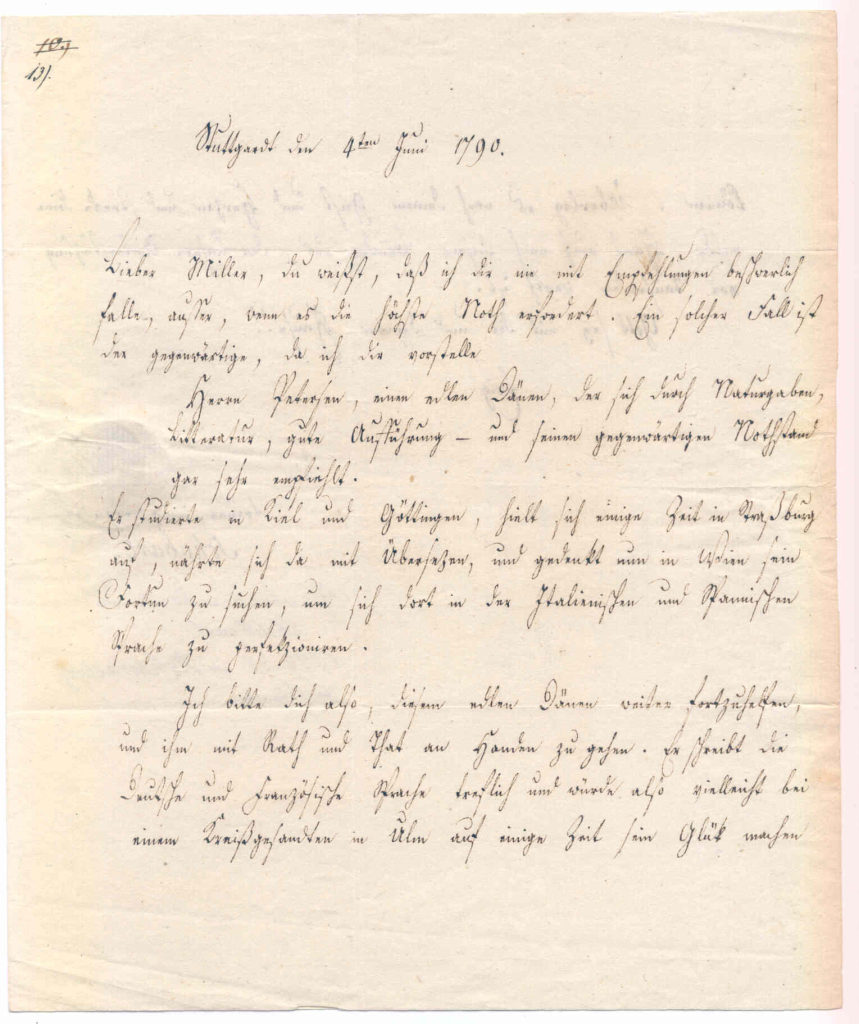 10.)
13).
Stuttgardt den 4ten Juni 1790.
Lieber Miller, du weißst, daß ich dir nie mit Empfehlungen beschwerlich
falle, ausser, wenn es die höchste Noth erfordert. Ein solcher Fall ist
der gegenwärtige, da ich dir vorstelle
Herrn Petersen, einen edlen Dänen, der sich durch Naturgaben,
Litteratur, gute Aufführung – und seinen gegenwärtigen Nothstand
gar sehr empfiehlt.
Er studierte in Kiel und Göttingen, hielt sich einige Zeit in Straßburg
auf, nährte sich da mit Übersezen, und gedenkt nun in Wien sein
Fortun zu suchen, um sich dort in der Italienischen und Spannischen
Sprache zu perfekzioniren.
Ich bitte dich also, diesem edlen Dänen weiter fortzuhelfen,
und ihm mit Rath und That an Handen zu gehen. Er schreibt die
Deutsche und Französische Sprache treflich und würde also vielleicht bei
einem Kreißgesandten in Ulm auf einige Zeit sein Glük machen